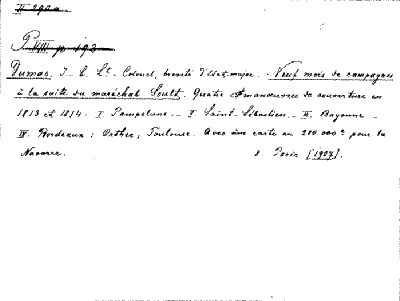 Dumas, J. B. Lt-Colonel, breveté d'état-major. Neuf mois de campagnes
à la suite du maréchal Soult. Quatre manœuvres de couverture en
1813 et 1814. I Pampelune -- I Saint-Sébastien -- III. Bayonne --
IV. Bordeaux; Orthez; Toulouse. Avec une carte au 200.000e pour la
Navarre. 8. Paris [1907].